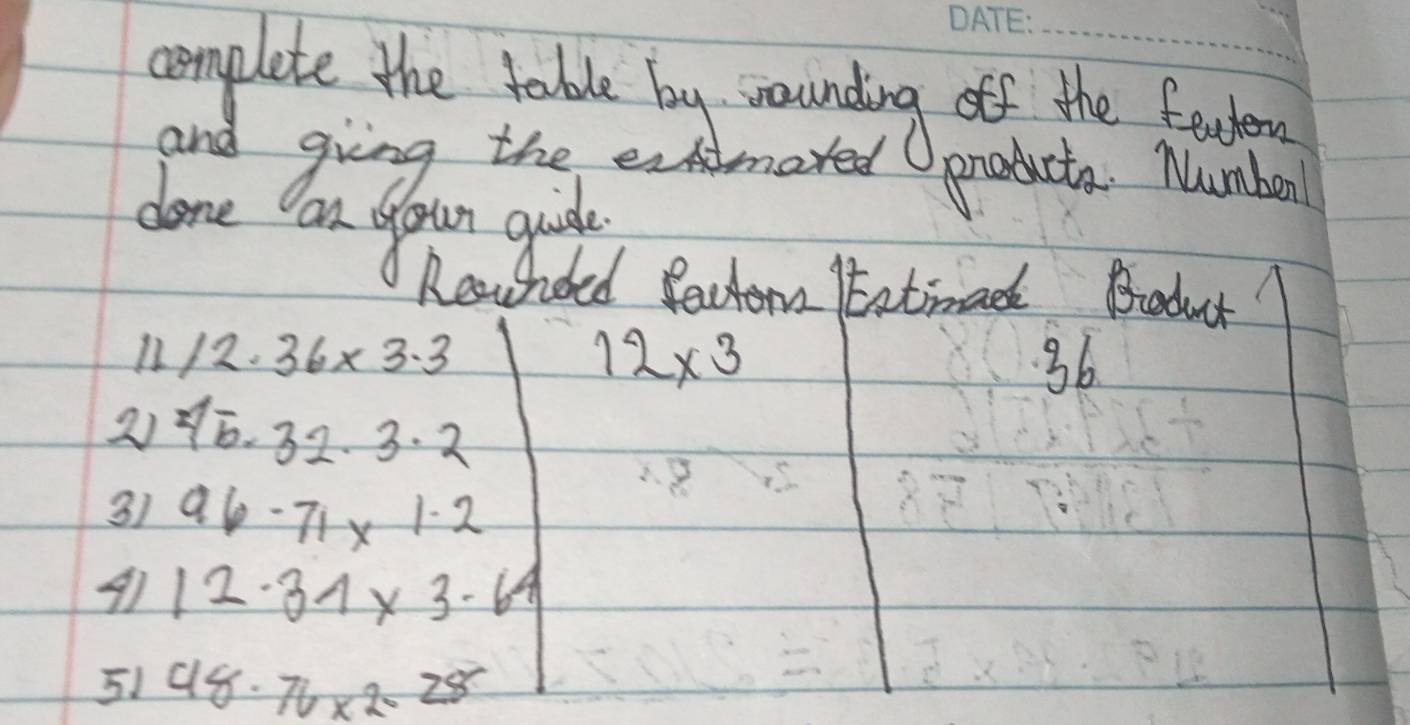 DATE:
complete the table by rounding off the factors
and giving the estimated products. Number 1
done as your guide.
Rounded factors Estimade Product
1) 12.36 x 3.3 12 x 3 36
2) 45.32. 3.2
3) 96.71 x 1.2
4) 12.34 x 3.64
5) 48.76 x 2.25